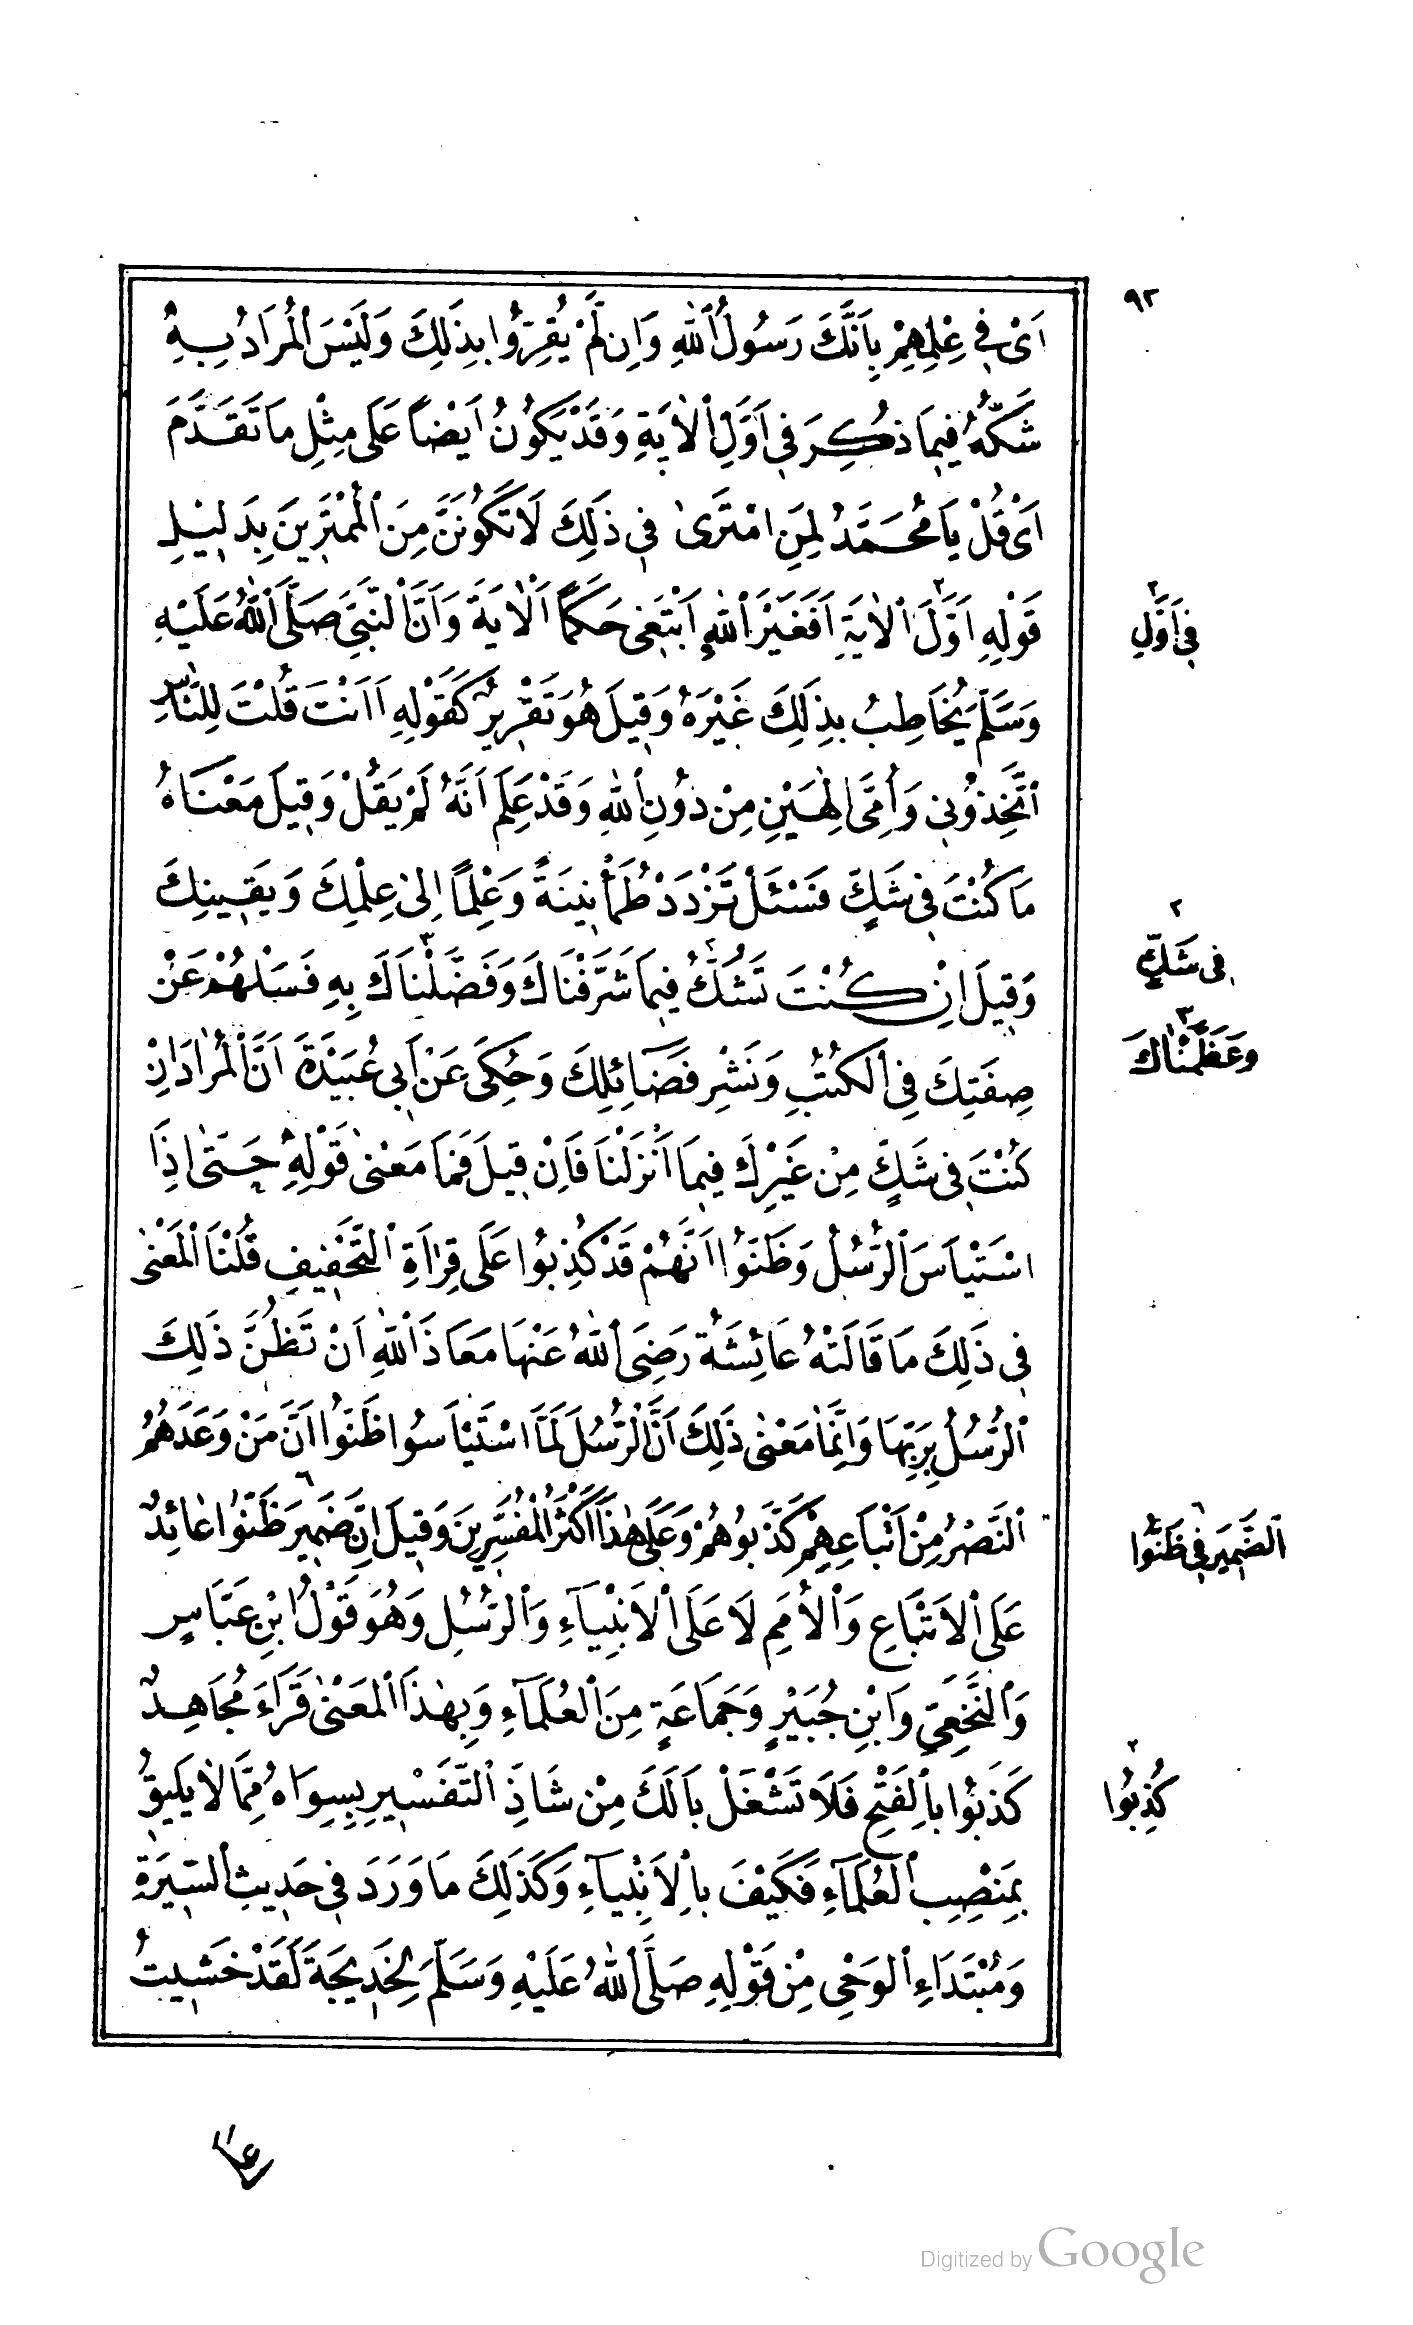 ٩٢
اَىْ فِى عِلْمِهِمْ بِاَنَّكَ رَسُولُ ٱللّٰهِ وَاِنْ لَّمْ يُقِرُّوا بِذٰلِكَ وَلَيْسَ ٱلْمُرَادُ بِهِ
شَكَّهُ فِيمَا ذُكِرَ فِى اَوَّلِ ٱلْاٰيَةِ وَقَدْ يَكُونُ اَيْضاً عَلَى مِثْلِ مَا تَقَدَّمَ
اَىْ قُلْ يَا مُحَمَّدُ لِمَنِ امْتَرَىٰ فِى ذٰلِكَ لَا تَكُونَنَّ مِنَ ٱلْمُمْتَرِينَ بِدَلِيْلِ
قَوْلِهِ اَوَّلَ ٱلْاٰيَةِ اَفَغَيْرَ ٱللّٰهِ اَبْتَغِى حَكَماً اَلْاٰيَةَ وَاَنَّ ٱلنَّبِىَّ صَلَّى ٱللّٰهُ عَلَيْهِ
وَسَلَّمَ يُخَاطِبُ بِذٰلِكَ غَيْرَهُ وَقِيلَ هُوَ تَقْرِيرٌ كَقَوْلِهِ اَاَنْتَ قُلْتَ لِلنَّاسِ
ٱتَّخِذُونِى وَأُمِّىَ اِلٰهَيْنِ مِنْ دُونِ ٱللّٰهِ وَقَدْ عَلِمَ اَنَّهُ لَمْ يَقُلْ وَقِيلَ مَعْنَاهُ
مَا كُنْتَ فِى شَكٍّ فَسْئَلْ تَزْدَدْ طُمَأْنِينَةً وَعِلْماً اِلىٰ عِلْمِكَ وَيَقِينِكَ
وَقِيلَ اِنْ كُنْتَ تَشُكُّ فِيمَا شَرَّفْنَاكَ وَفَضَّلْنَاكَ بِهِ فَسَلْهُمْ عَنْ
صِفَتِكَ فِى ٱلْكُتُبِ وَنَشْرِ فَضَائِلِكَ وَحُكِىَ عَنْ اَبِى عُبَيْدَةَ اَنَّ ٱلْمُرَادَ اِنْ
كُنْتَ فِى شَكٍّ مِنْ غَيْرِكَ فِيمَا اَنْزَلْنَا فَاِنْ قِيلَ فَمَا مَعْنىٰ قَوْلِهِ حَتّٰى اِذَا
اسْتَيْاَسَ ٱلرُّسُلُ وَظَنُّوا اَنَّهُمْ قَدْ كُذِبُوا عَلَى قِرَاَةِ ٱلتَّخْفِيفِ قُلْنَا ٱلْمَعْنىٰ
فِى ذٰلِكَ مَا قَالَتْهُ عَائِشَةُ رَضِىَ ٱللّٰهُ عَنْهَا مَعَاذَ ٱللّٰهِ اَنْ تَظُنَّ ذٰلِكَ
ٱلرُّسُلُ بِرَبِّهَا وَاِنَّمَا مَعْنىٰ ذٰلِكَ اَنَّ ٱلرُّسُلَ لَمَّا اسْتَيْاَسُوا ظَنُّوا اَنَّ مَنْ وَعَدَهُمُ
ٱلنَّصْرَ مِنْ اَتْبَاعِهِمْ كَذَّبُوهُمْ وَعَلَى هٰذَا اَكْثَرُ ٱلْمُفَسِّرِينَ وَقِيلَ اِنَّ ضَمِيرَ ظَنُّوا عَائِدٌ
عَلَى ٱلْاَتْبَاعِ وَٱلْأُمَمِ لَا عَلَى ٱلْاَنْبِيَآءِ وَٱلرُّسُلِ وَهُوَ قَوْلُ ابْنِ عَبَّاسٍ
وَٱلنَّخَعِىِّ وَابْنِ جُبَيْرٍ وَجَمَاعَةٍ مِنَ ٱلْعُلَمَآءِ وَبِهٰذَا ٱلْمَعْنىٰ قَرَاَءَ مُجَاهِدٌ
كَذَبُوا بِٱلْفَتْحِ فَلَا تَشْغَلْ بَالَكَ مِنْ شَاذِّ ٱلتَّفْسِيرِ بِسِوَاهُ مِمَّا لَا يَلِيقُ
بِمَنْصِبِ ٱلْعُلَمَآءِ فَكَيْفَ بِٱلْاَنْبِيَآءِ وَكَذٰلِكَ مَا وَرَدَ فِى حَدِيثِ ٱلسِّيرَةِ
وَمُبْتَدَاءِ ٱلْوَحْىِ مِنْ قَوْلِهِ صَلَّى ٱللّٰهُ عَلَيْهِ وَسَلَّمَ لِخَدِيجَةَ لَقَدْ خَشِيتُ
٢
فِى اَوَّلِ
٢
فِى شَكٍّ
٣
وَعَظَّمْنَاكَ
٦
ٱلضَّمِيرَ فِى ظَنُّوا
٢
كُذِبُوا
Digitized by Google